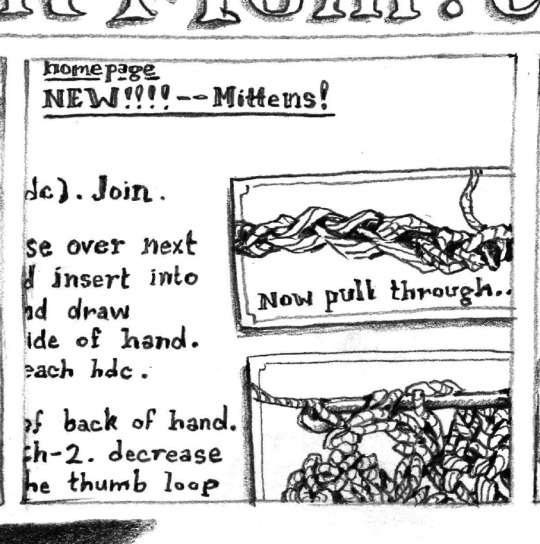 homepage
NEW!!!!--Mittens!
dc). Join.
se over next
insert into
nd draw
ide of hand.
each hdc.
of back of hand.
ch-2. decrease
he thumb loop
Now pull through..